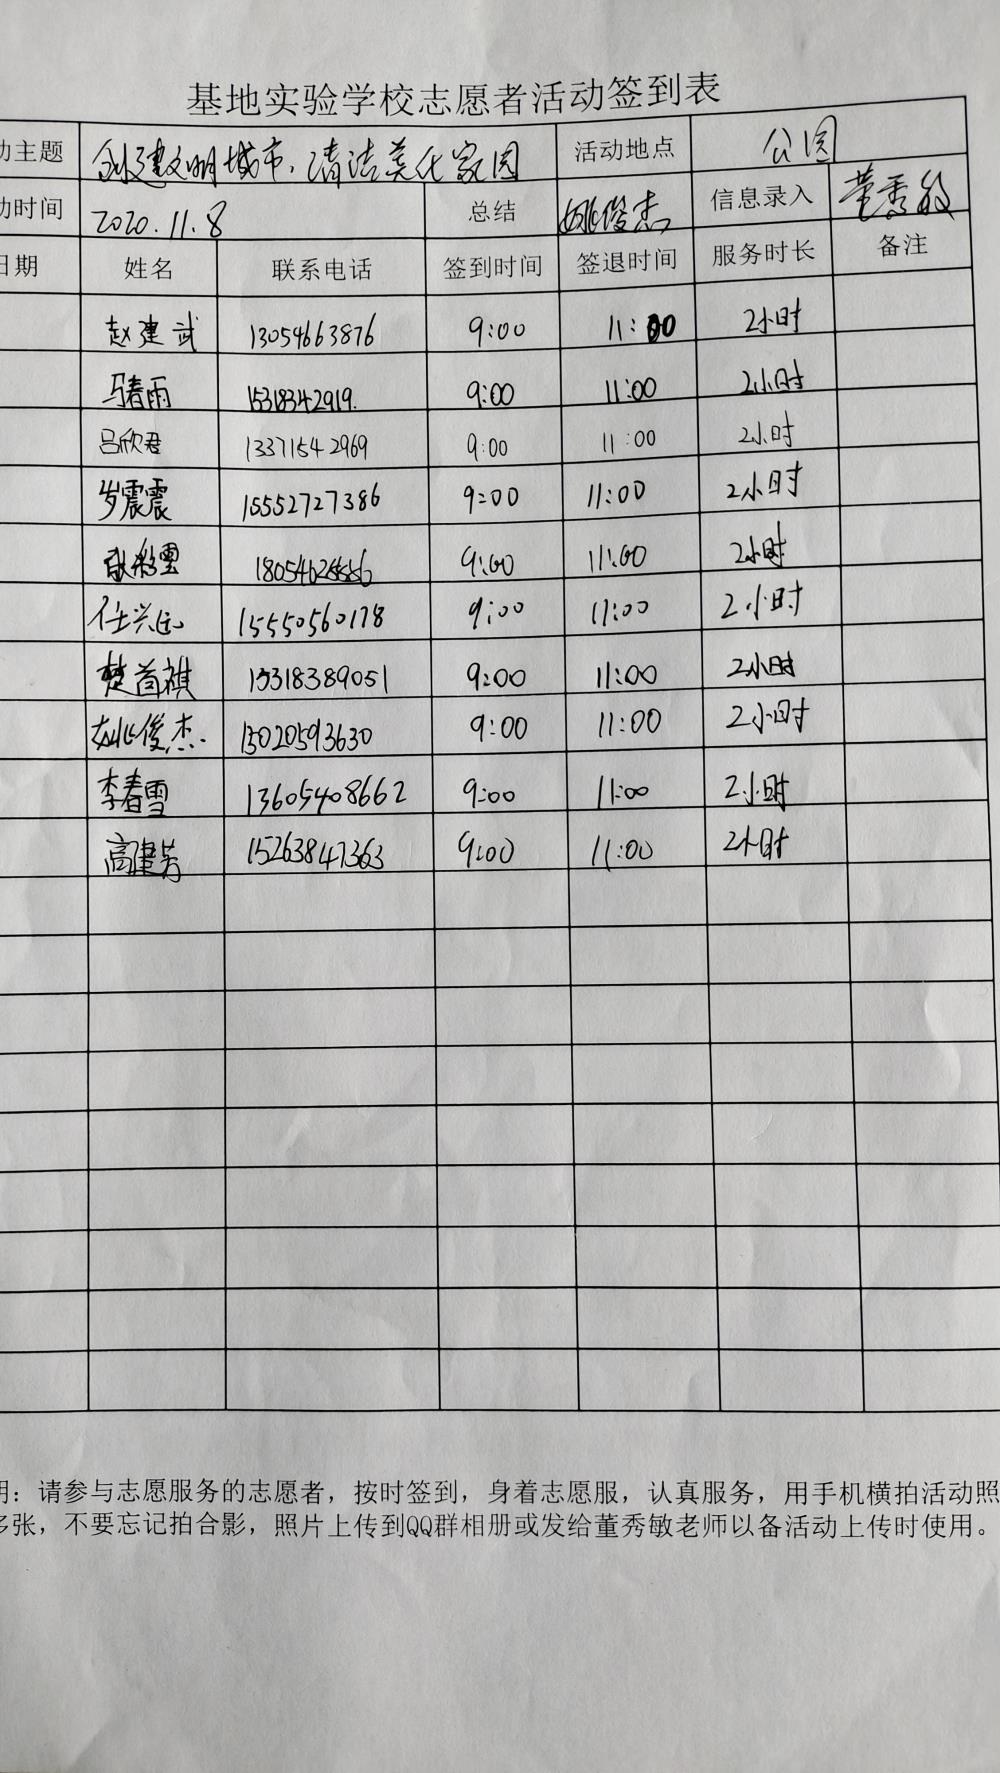 基地实验学校志愿者活动签到表
动主题 创建文明城市，清洁美化家园 活动地点 公园
动时间 2020.11.8 总结 姚俊杰 信息录入 董秀敏
日期 姓名 联系电话 签到时间 签退时间 服务时长 备注
赵建武 13054663876 9:00 11:00 2小时
马春雨 15318342919. 9:00 11:00 2小时
吕欣君 13371542969 9:00 11:00 2小时
岁震震 15552727386 9:00 11:00 2小时
9:00 11:00 2小时
任兴远 15550560178 9:00 11:00 2小时
楚首祺 15318389051 9:00 11:00 2小时
姚俊杰. 13020593630 9:00 11:00 2小时
李春雪 13605408662 9:00 11:00 2小时
高建芳 15263847363 9:00 11:00 2小时
明：请参与志愿服务的志愿者，按时签到，身着志愿服，认真服务，用手机横拍活动照
多张，不要忘记拍合影，照片上传到QQ群相册或发给董秀敏老师以备活动上传时使用。